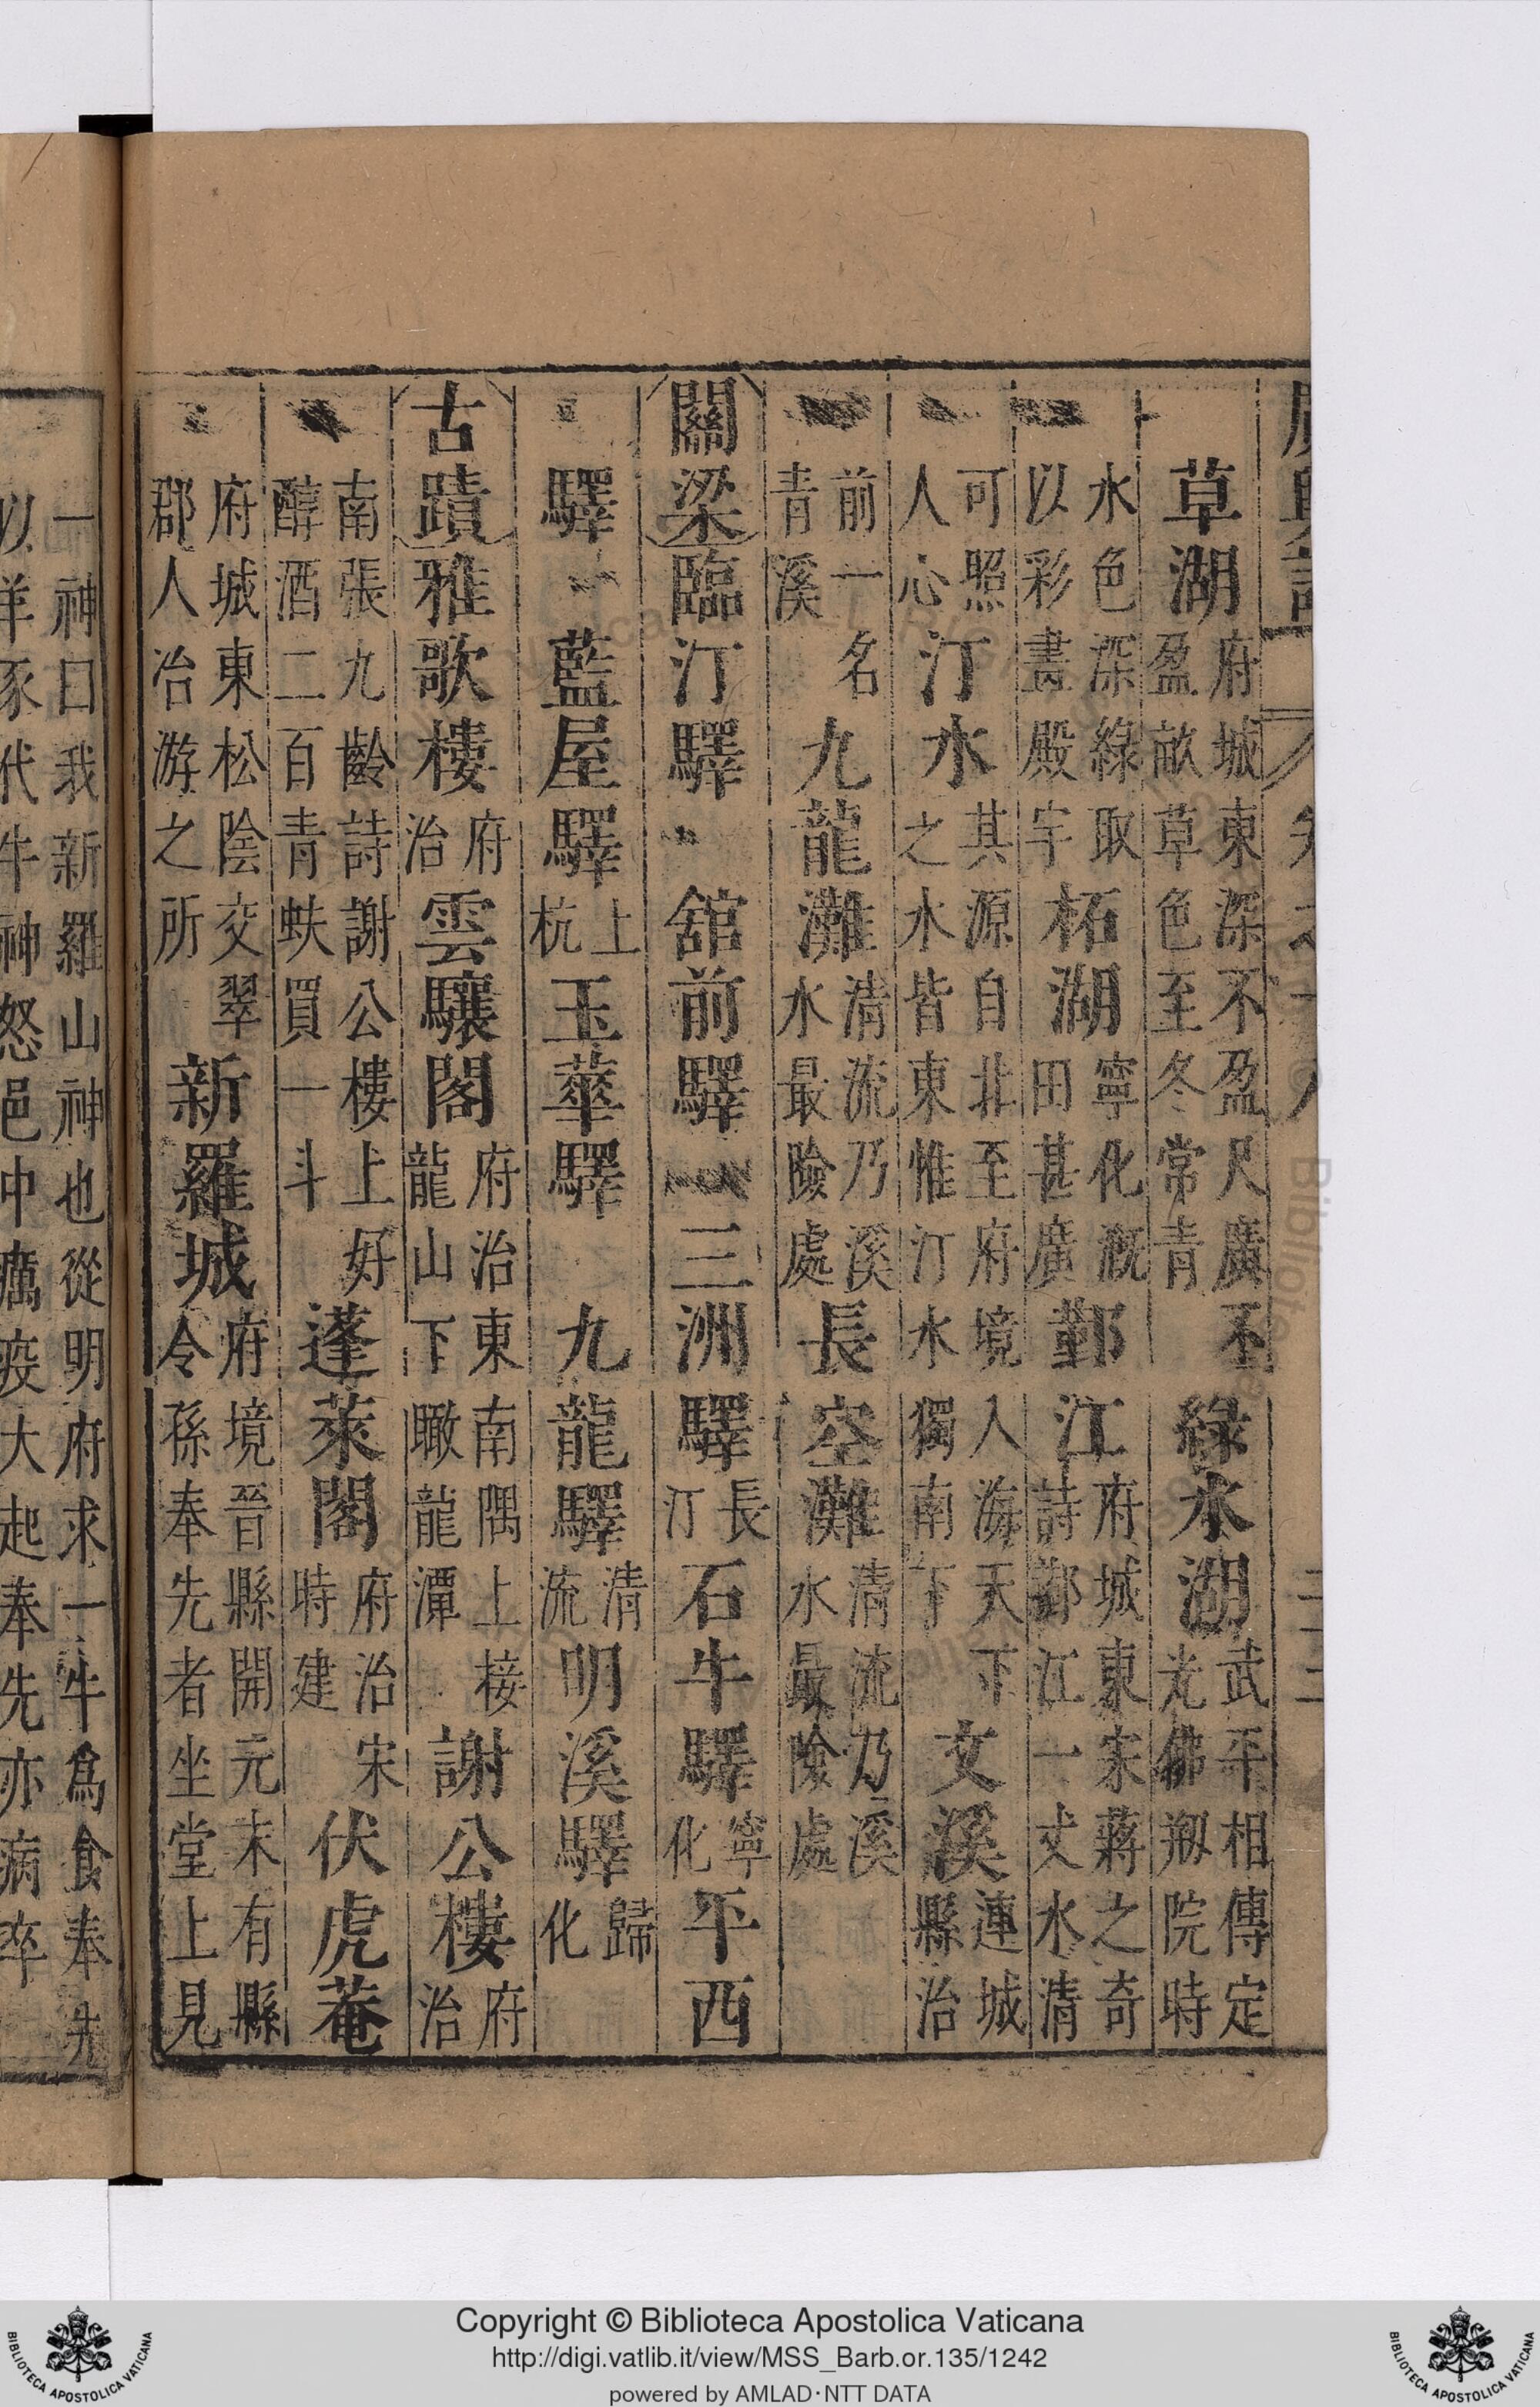 草湖府城東深不盈尺廣不盈畝草色至冬常青緑水湖武平相傳定光佛剏院時
水色深綠取以彩畫殿宇柘湖寧化溉田甚廣鄞江府城東宋蔣之奇詩鄞江一丈水清
可照人心汀水其源自北至府境入海天下之水皆東惟汀水獨南下文溪連城縣治
前一名青溪九龍灘清流乃溪水最險處長空灘清流乃溪水最險處
關梁臨汀驛舘前驛三洲驛長汀石牛驛寧化平西
驛藍屋驛上杭玉華驛九龍驛清流明溪驛歸化
古蹟雅歌樓府治雲驤閣府治東南隅上接龍山下瞰龍潭謝公樓府治
南張九齡詩謝公樓上好醇酒二百青蚨買一斗蓬萊閣府治宋時建伏虎菴
府城東松陰交翠郡人冶游之所新羅城府境晉縣開元末有縣令孫奉先者坐堂上見
一神曰我新羅山神也從明府求一牛爲食奉先
以羊豕代牛神怒邑中癘疫大起奉先亦病卒
Copyright © Biblioteca Apostolica Vaticana
http://digi.vatlib.it/view/MSS_Barb.or.135/1242
powered by AMLAD·NTT DATA
BIBLIOTECA APOSTOLICA VATICANA
BIBLIOTECA APOSTOLICA VATICANA